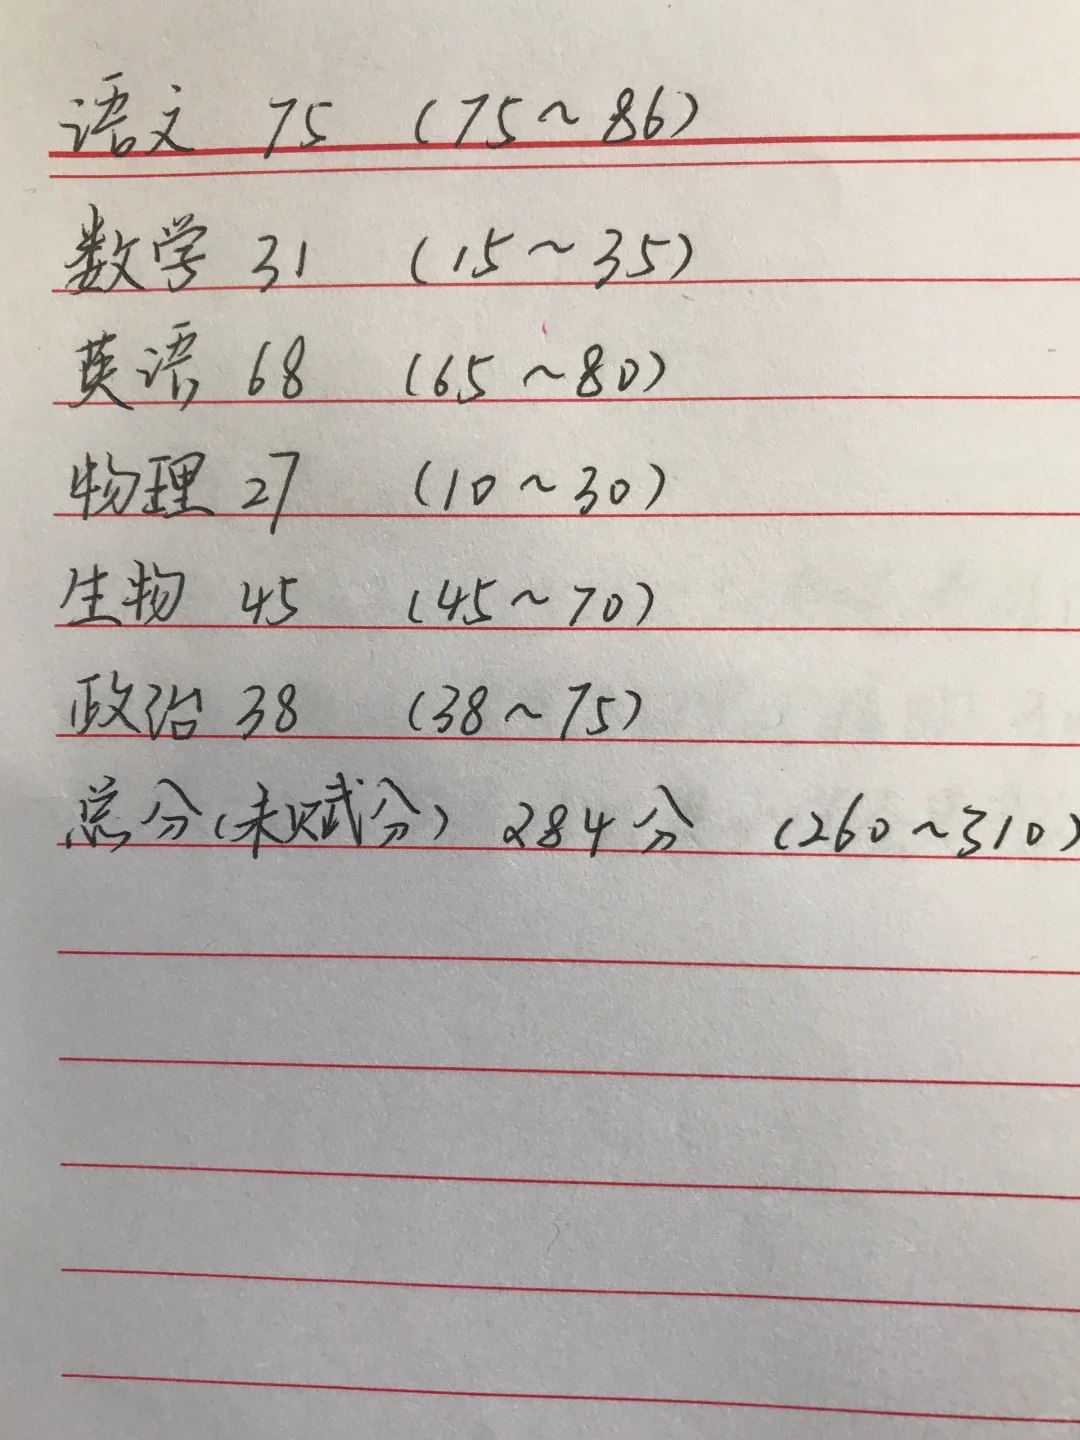 语文 75 (75~86)
数学 31 (15~35)
英语 68 (65~80)
物理 27 (10~30)
生物 45 (45~70)
政治 38 (38~75)
总分(未赋分) 284分 (260~310)